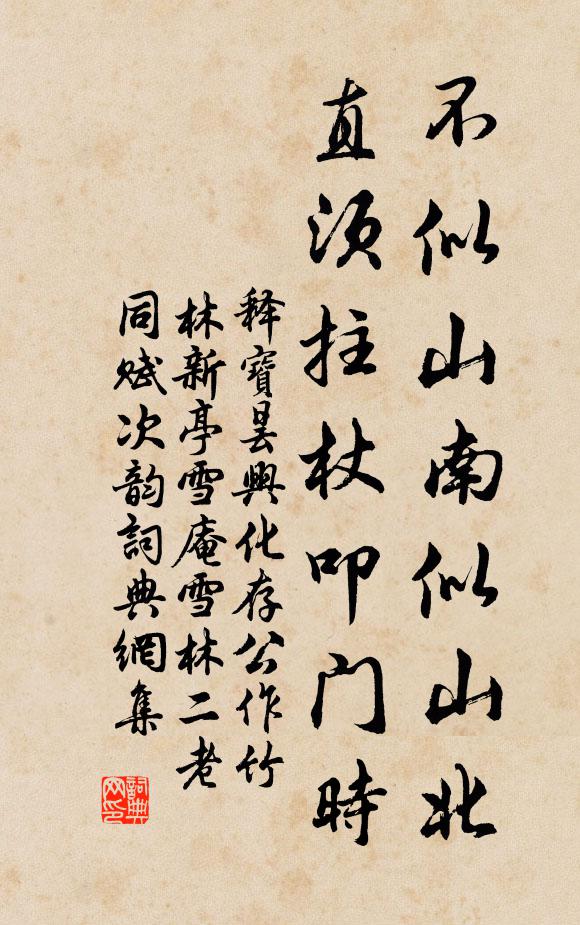 不似山南似山北
直须拄杖叩门時
释寶昙興化存公作竹
林新亭雪庵雪林二老
同赋次韵詞典網集
詞典网印